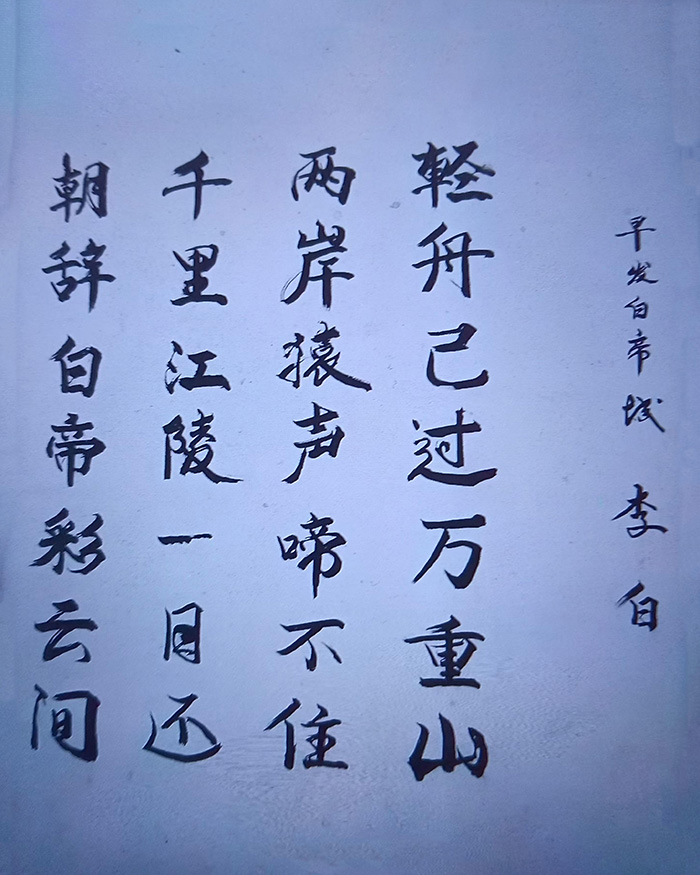 朝辞白帝彩云间
千里江陵一目还
两岸猿声啼不住
軽舟已过万重山
早发白帝城 李白